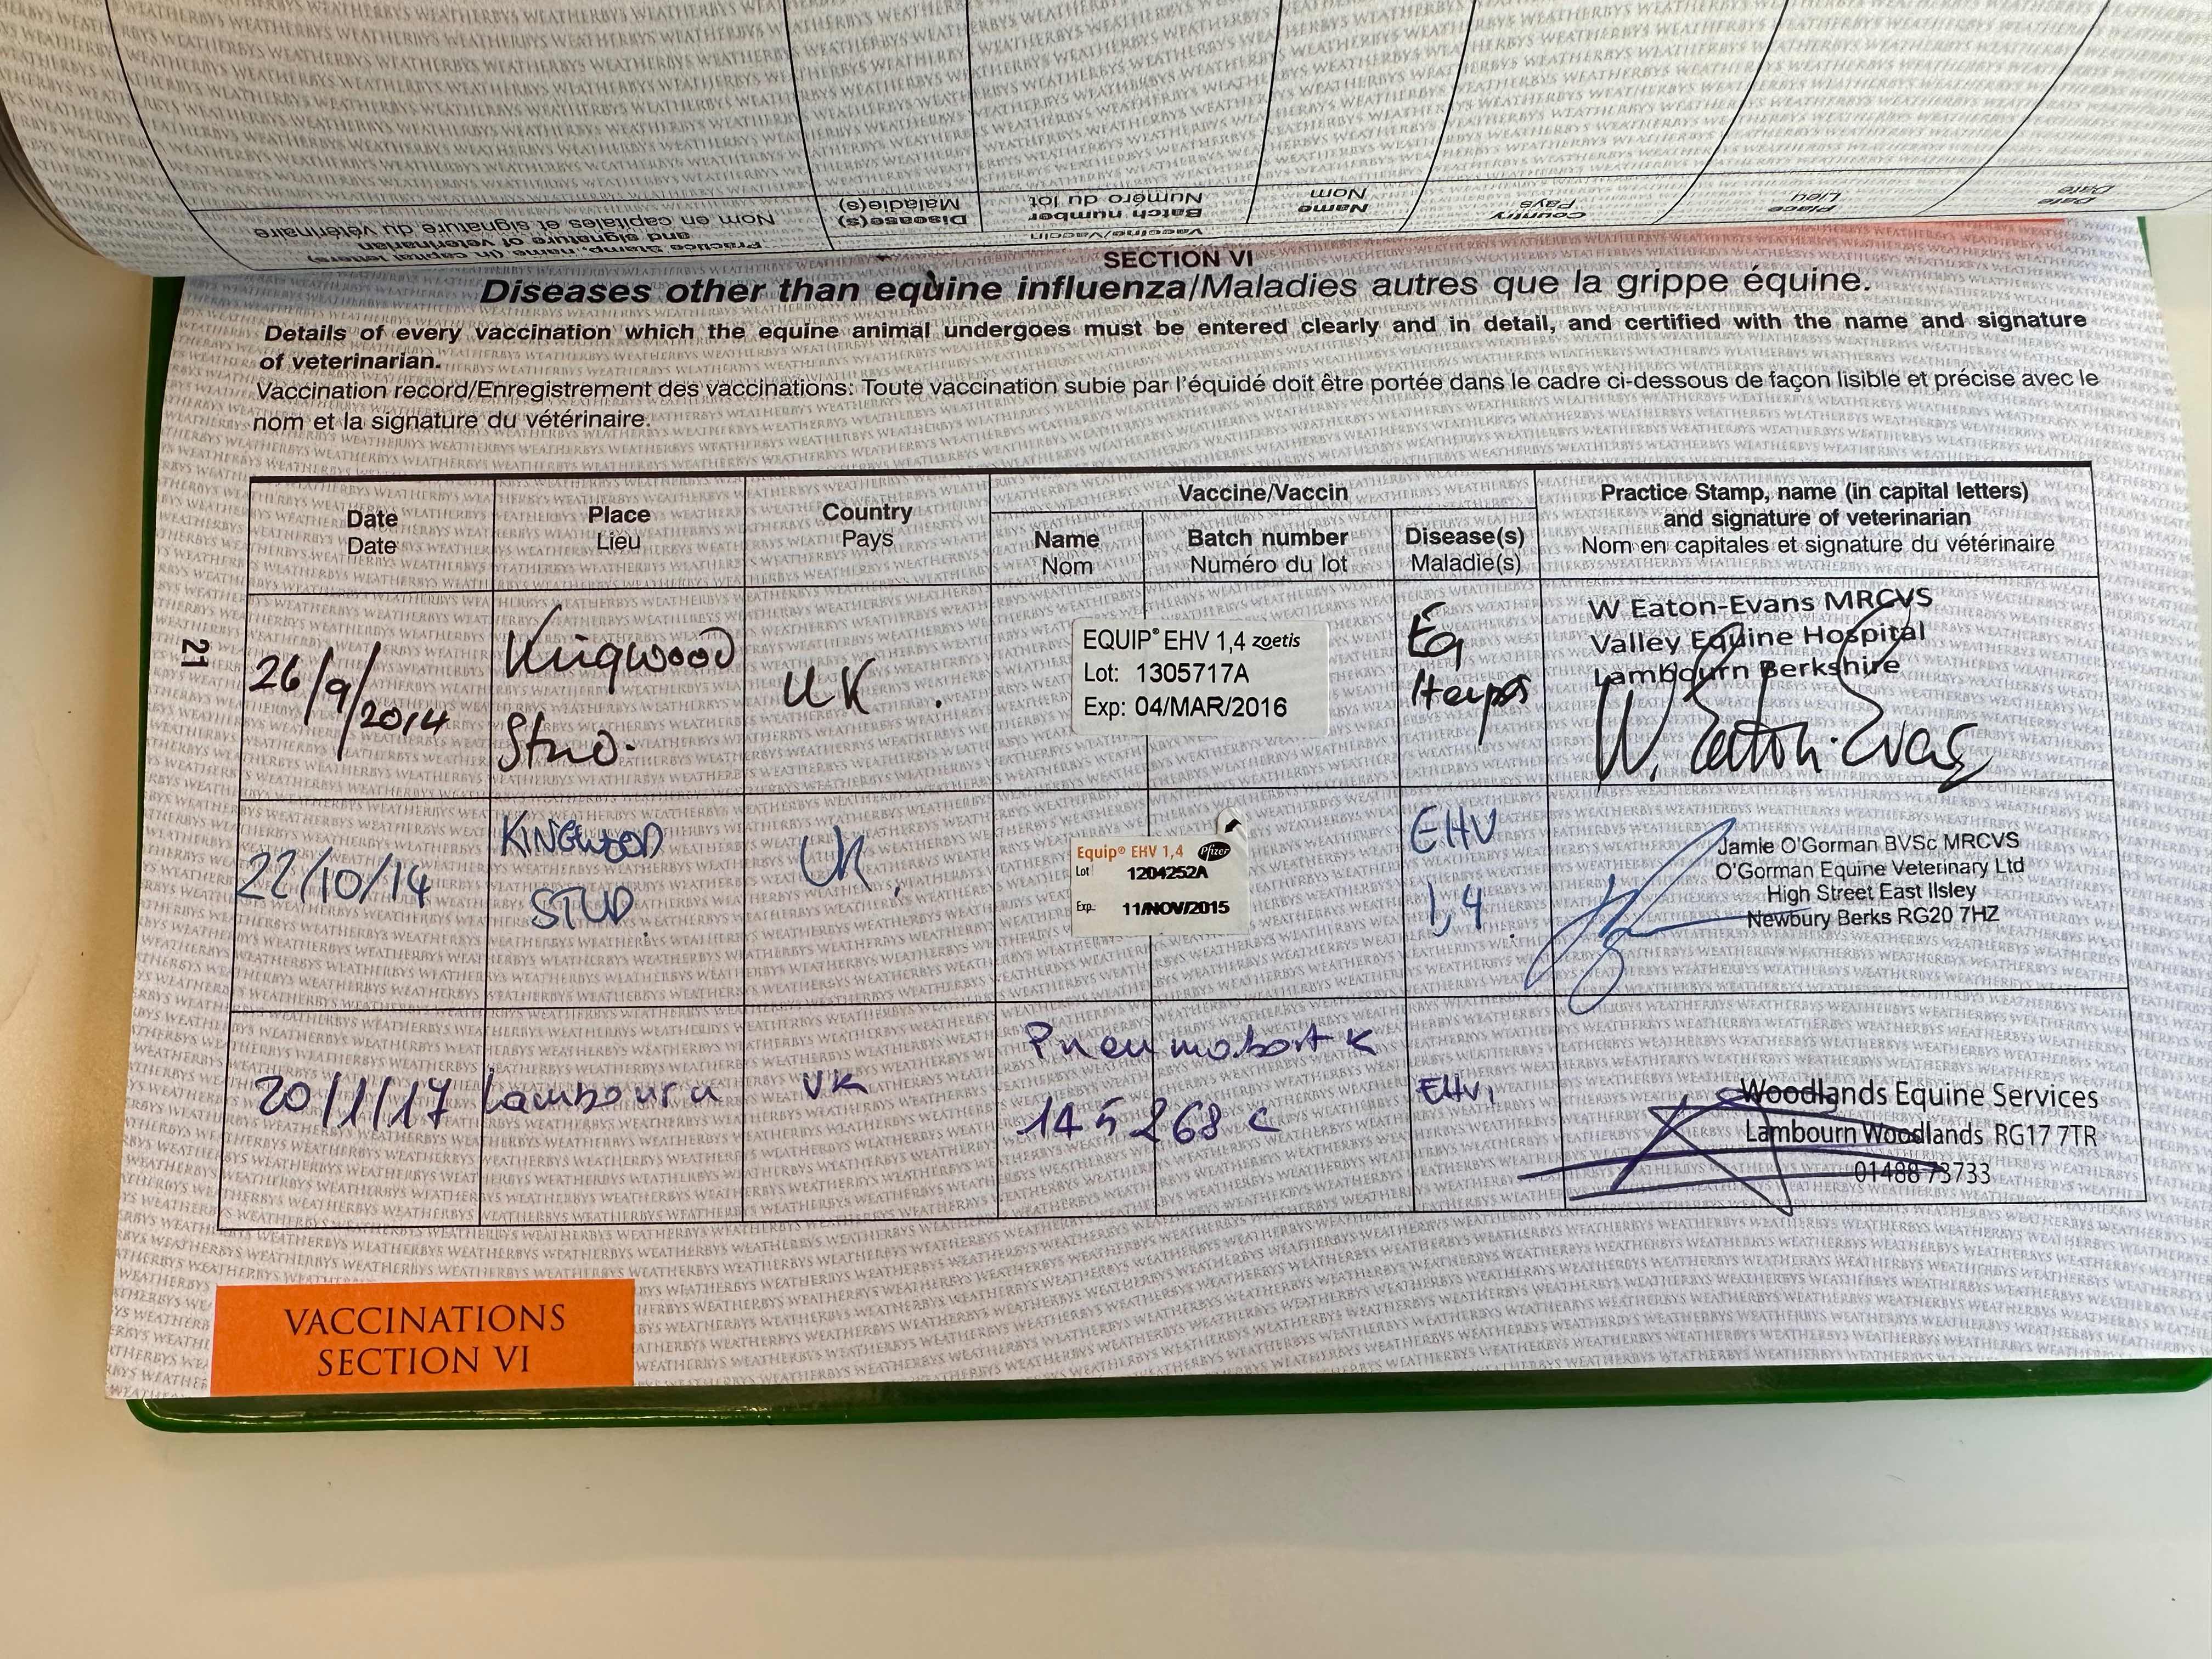 Practice Stamp, name (in capital letters)
and signature of veterinarian
Nom en capitales et signature du vétérinaire
Vaccine/Vaccin
Disease(s)
Maladie(s)
Batch number
Numéro du lot
Name
Nom
Country
Pays
Place
Lieu
Date
Date
SECTION VI
Diseases other than equine influenza/Maladies autres que la grippe équine.
Details of every vaccination which the equine animal undergoes must be entered clearly and in detail, and certified with the name and signature
of veterinarian.
Vaccination record/Enregistrement des vaccinations: Toute vaccination subie par l'équidé doit être portée dans le cadre ci-dessous de façon lisible et précise avec le
nom et la signature du vétérinaire.
Date
Date
Place
Lieu
Country
Pays
Vaccine/Vaccin
Name
Nom
Batch number
Numéro du lot
Disease(s)
Maladie(s)
Practice Stamp, name (in capital letters)
and signature of veterinarian
Nom en capitales et signature du vétérinaire
26/9/2014
Kingwood
Stud.
UK.
EQUIP® EHV 1,4 zoetis
Lot: 1305717A
Exp: 04/MAR/2016
Eq
Herpes
W Eaton-Evans MRCVS
Valley Equine Hospital
Lambourn Berkshire
W. Eaton-Evans
22/10/14
KINGWOOD
STUD.
UK.
Equip® EHV 1,4 Pfizer
Lot 1204252A
Exp. 11/NOV/2015
EHV
1,4.
Jamie O'Gorman BVSc MRCVS
O'Gorman Equine Veterinary Ltd
High Street East Ilsley
Newbury Berks RG20 7HZ
20/1/17
Lambourn
UK
Pneumabort K
145268 C
EHV1
Woodlands Equine Services
Lambourn Woodlands RG17 7TR
01488 73733
21
VACCINATIONS
SECTION VI